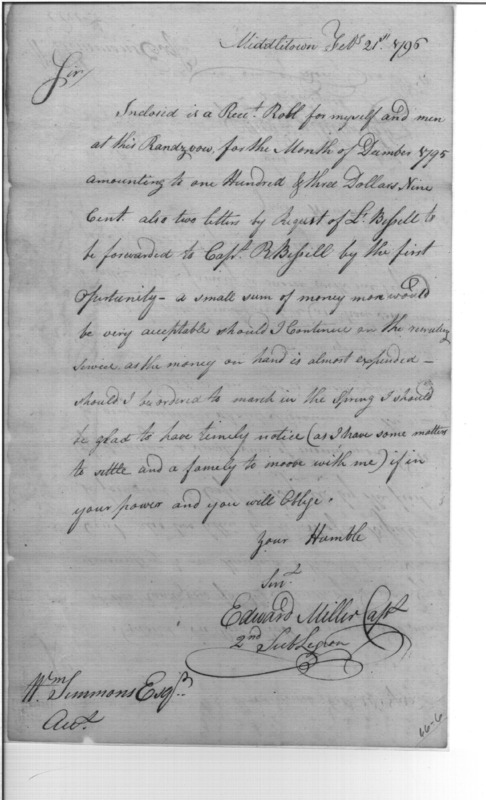 Middletown Feby 21st 1796
Sir,
Inclosed is a Rect Roll for myself and men
at this Randzvow, for the Month of Decmber 1795
amounting to one Hundred & three Dollars Nine
Cent. also two letters by Request of Lt Bissell to
be forwarded to Capt. R Bissill by the first
oportunity – a small sum of money more would
be very acceptable should I Continue on the recruiting
Service as the money on hand is almost expended –
should I be ordered to march in the Spring I should
be glad to have timely notice (as I have some matters
to settle and a famely to moove with me) if in
your power and you will Oblige.
Your Humble
Sert
Edward Miller Capt
2nd Sub Legion
Wm Simmons Esqr
Act
66-6